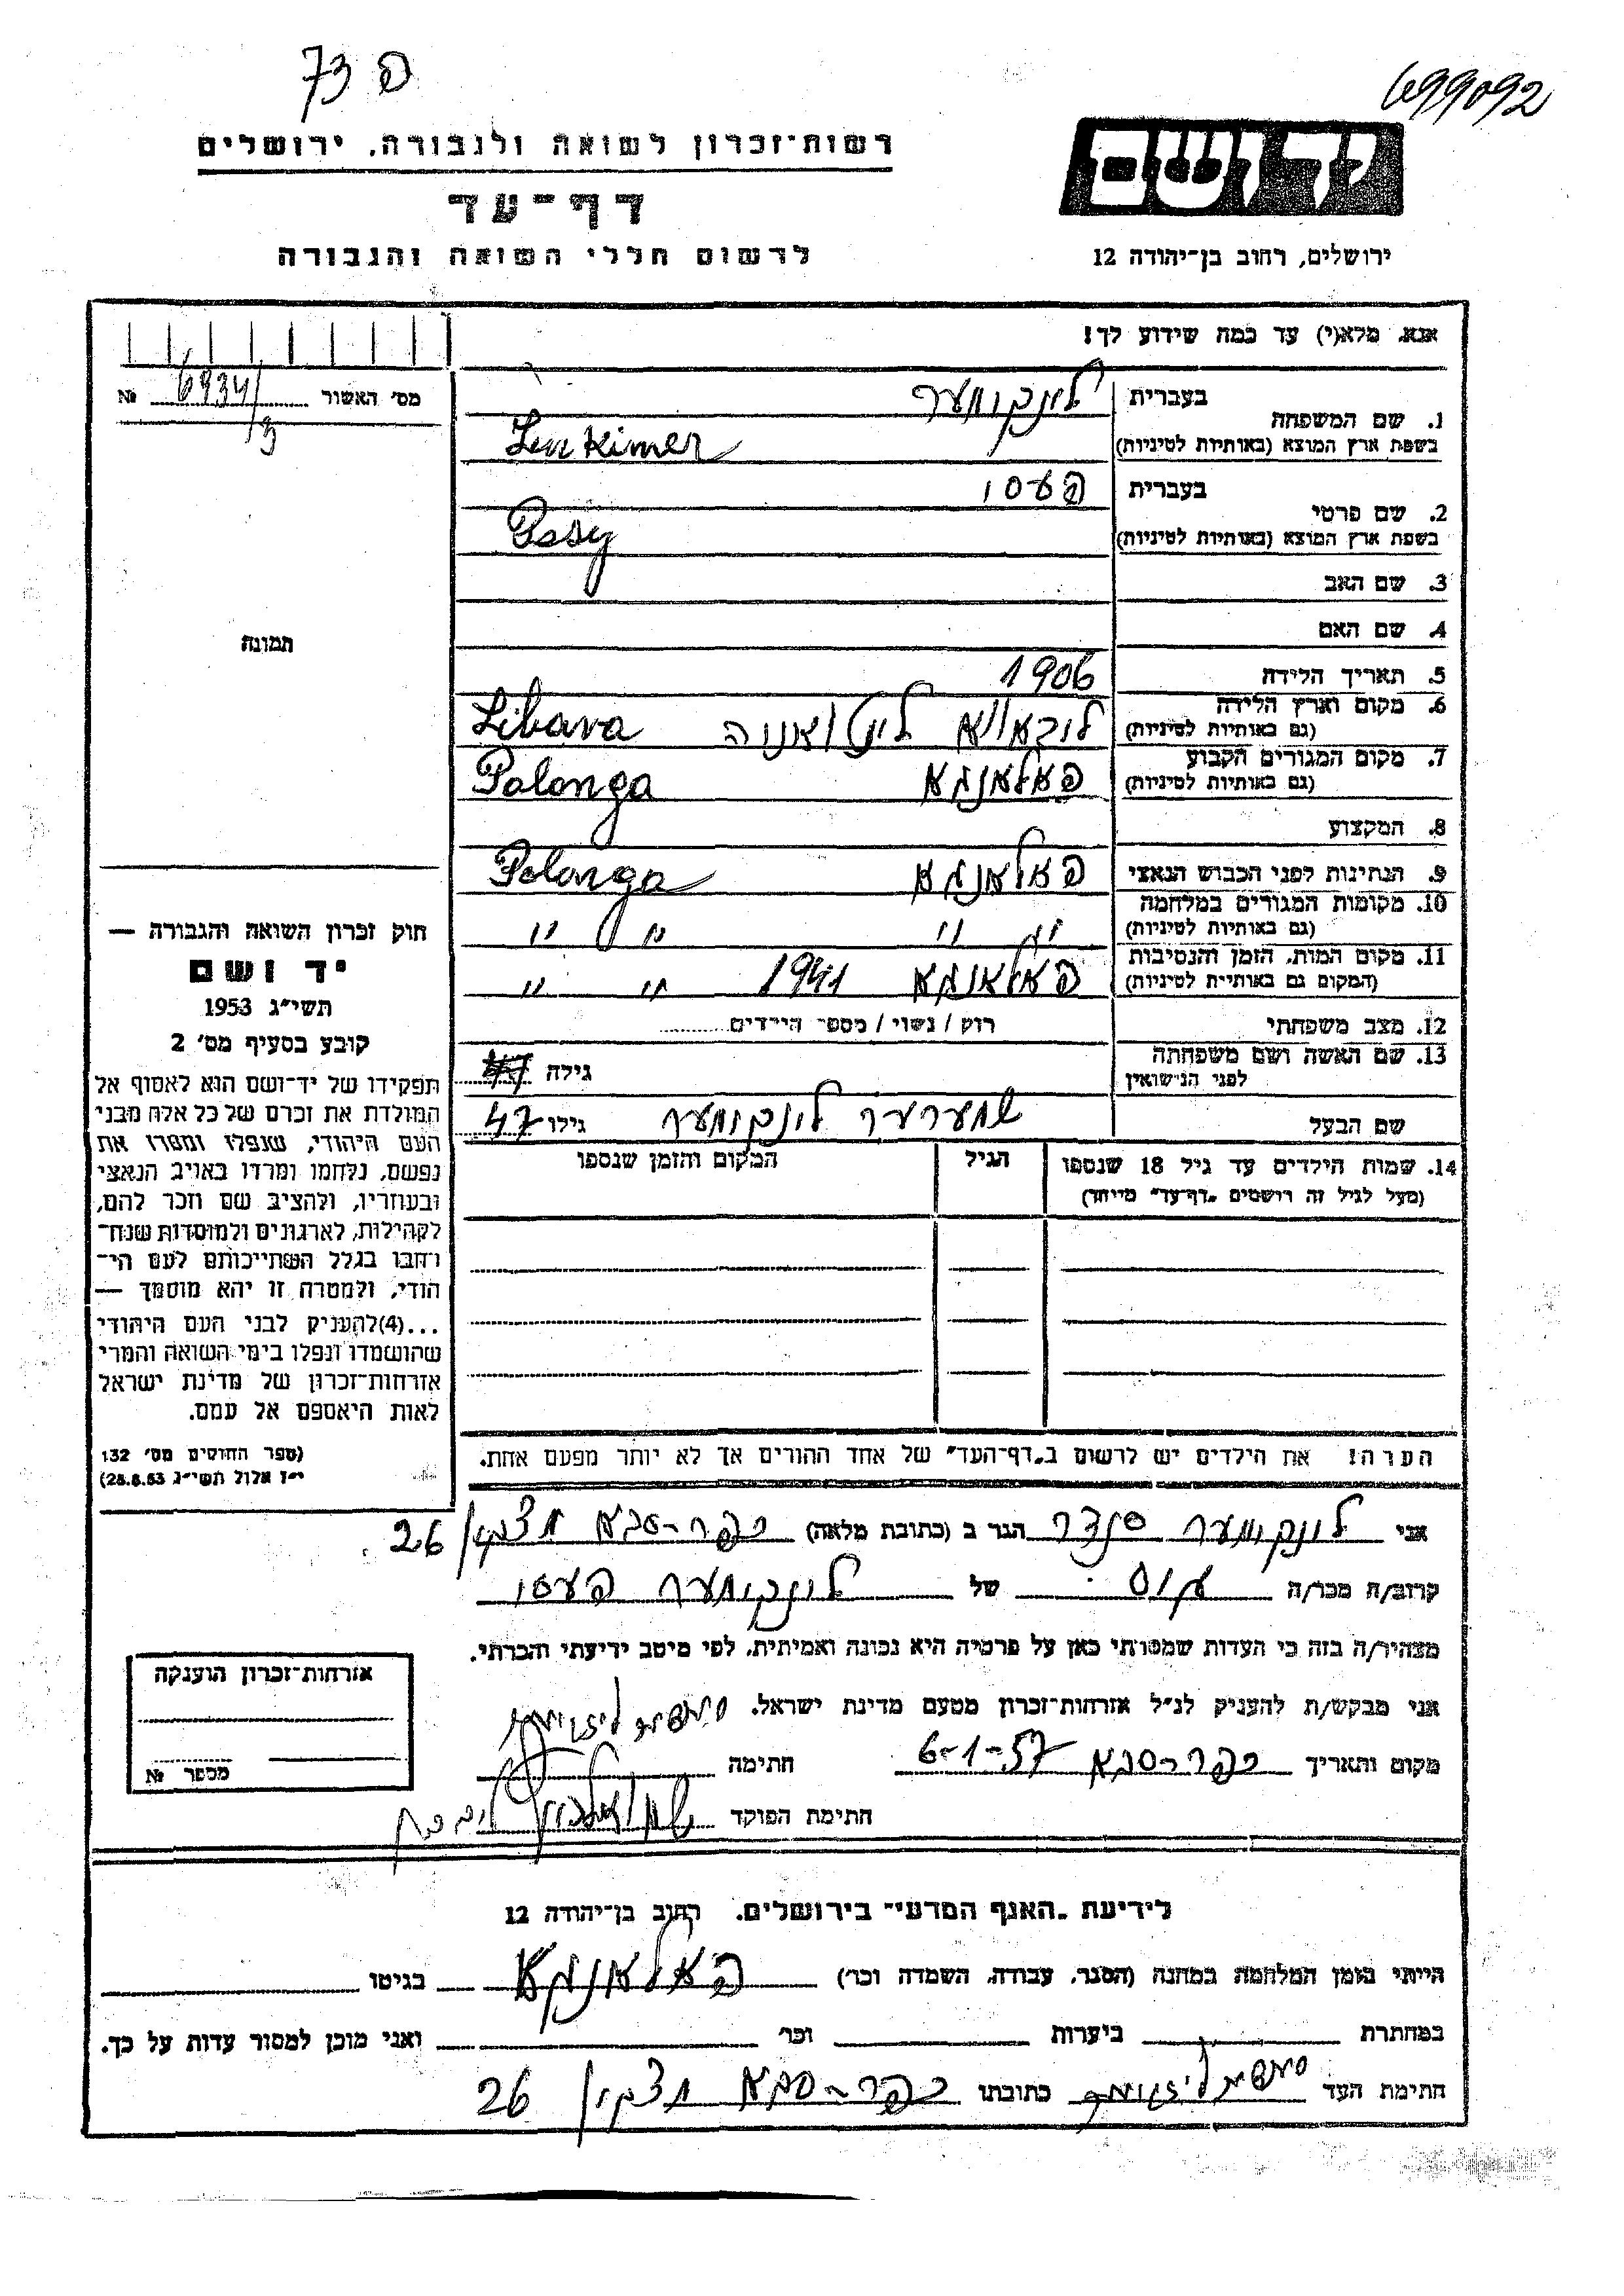 פ 73
699092
רשות־זכרון לשואה ולגבורה, ירושלים
דף־עד
לרשום חללי השואה והגבורה
יד ושם
ירושלים, רחוב בן־יהודה 12
אנא, מלא(י) עד כמה שידוע לך!
מס׳ האשור 6934/3 №
1. שם המשפחה
בעברית לינקימער
בשפת ארץ המוצא (באותיות לטיניות) Linkimer
2. שם פרטי
בעברית פעסי
בשפת ארץ המוצא (באותיות לטיניות) Pesy
3. שם האב
4. שם האם
תמונה
5. תאריך הלידה 1906
6. מקום וארץ הלידה
(גם באותיות לטיניות) ליבאווא Libava
7. מקום המגורים הקבוע
(גם באותיות לטיניות) פאלאנגא Palonga
8. המקצוע
9. הנתינות לפני הכבוש הנאצי פאלאנגא Polonga
10. מקומות המגורים במלחמה
(גם באותיות לטיניות) " " " "
11. מקום המות, הזמן והנסיבות
(המקום גם באותיית לטיניות) פאלאנגא 1941 " "
12. מצב משפחתי רוק / נשוי / מספר הילדים
13. שם האשה ושם משפחתה
לפני הנישואין גילה
שם הבעל לינקימער גילו 47
14. שמות הילדים עד גיל 18 שנספו הגיל המקום והזמן שנספו
(מעל לגיל זה רושמים „דף־עד״ מייוחד)
הערה! את הילדים יש לרשום ב„דף־העד״ של אחד ההורים אך לא יותר מפעם אחת.
חוק זכרון השואה והגבורה —
יד ושם
תשי״ג 1953
קובע בסעיף מס׳ 2
תפקידו של יד־ושם הוא לאסוף אל
המולדת את זכרם של כל אלה מבני
העם היהודי, שנפלו ומסרו את
נפשם, נלחמו ומרדו באויב הנאצי
ובעוזריו, ולהציב שם וזכר להם,
לקהילות, לארגונים ולמוסדות שנח־
רחבו בגלל השתייכותם לעם הי־
הודי, ולמטרה זו יהא מוסמך —
...(4)להעניק לבני העם היהודי
שהושמדו ונפלו בימי השואה והמרי
אזרחות־זכרון של מדינת ישראל
לאות היאספם אל עמם.
(ספר החוקים מס׳ 132
י״ז אלול תשי״ג 28.8.53)
אני לינקימער סנדר הגר ב (כתובת מלאה) כפר-סבא 26
קרוב/ה מכר/ה גיס של לינקימער פעסי
מצהיר/ה בזה כי העדות שמסרתי כאן על פרטיה היא נכונה ואמיתית, לפי מיטב ידיעתי והכרתי.
אני מבקש/ת להעניק לנ״ל אזרחות־זכרון מטעם מדינת ישראל.
מקום ותאריך כפר-סבא 6-1-57 חתימה
חתימת הפוקד
אזרחות־זכרון הוענקה
מספר №
לידיעת „האגף המדעי״ בירושלים, רחוב בן־יהודה 12
הייתי בזמן המלחמה במחנה (הסגר, עבודה, השמדה וכר׳) פאלאנגא בגיטו
במחתרת ביערות וכר׳ ואני מוכן למסור עדות על כך.
חתימת העד כתובתו כפר-סבא 26